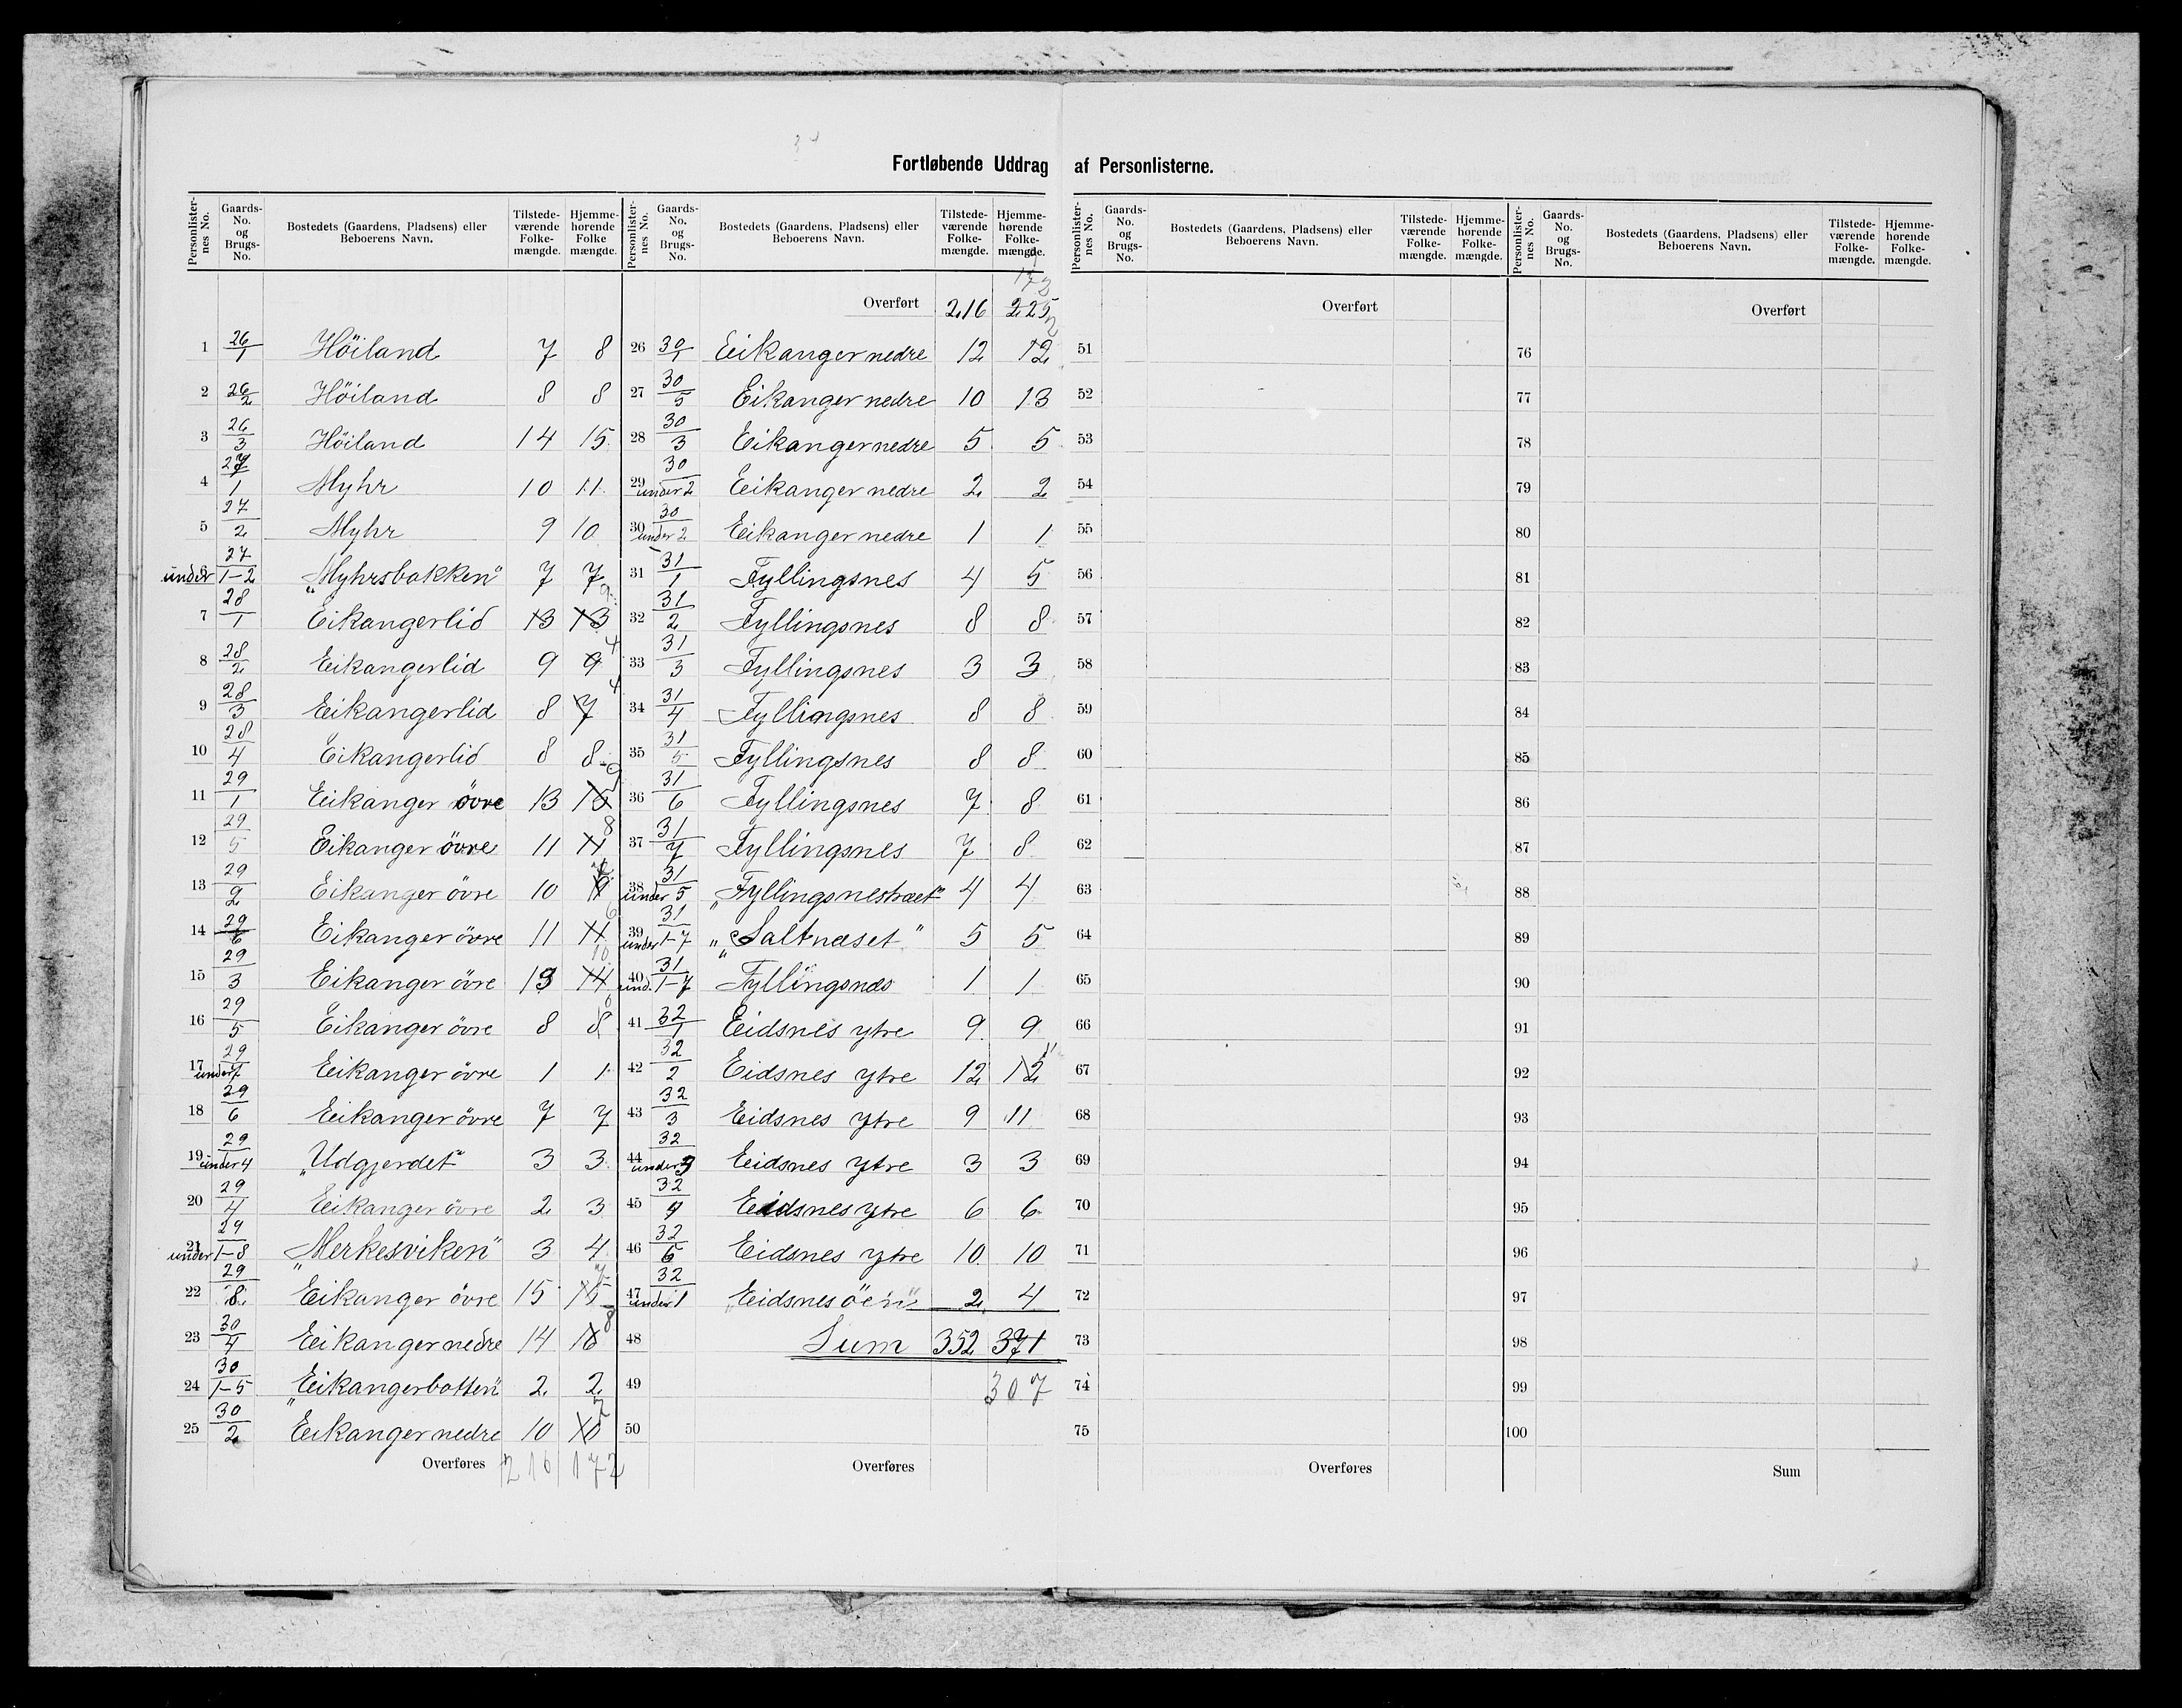 Fortløbende Uddrag af Personlisterne.
Personlister-nes No. | Gaards-No. og Brugs-No. | Bostedets (Gaardens, Pladsens) eller Beboerens Navn. | Tilstede-værende Folke-mængde. | Hjemme-hørende Folke mængde.
1 26/1 Höiland 7 8
2 26/2 Höiland 8 8
3 26/3 Höiland 14 15
4 27/1 Myhr 10 11
5 27/2 Myhr 9 10
6 under 27/1-2 "Myhrsbakken" 7 7
7 28/1 Eikangerlid 13 13 9
8 28/2 Eikangerlid 9 9 4
9 28/3 Eikangerlid 8 7 4
10 28/4 Eikangerlid 8 8
11 29/1 Eikanger övre 13 15 9
12 29/5 Eikanger övre 11 11 8
13 29/2 Eikanger övre 10
14 29/6 Eikanger övre 11 11 6
15 29/3 Eikanger övre 13 14 10
16 29/5 Eikanger övre 8 8
17 under 29/7 Eikanger övre 1 1
18 29/6 Eikanger övre 7 7
19 under 29/4 "Udgjerdet" 3 3
20 29/4 Eikanger övre 2 3
21 under 29/1-8 "Merkesviken" 3 4
22 29/8 Eikanger övre 15 15 7
23 30/4 Eikanger nedre 14 16 8
24 30/1-5 "Eikangerbotten" 2 2
25 30/2 Eikanger nedre 10 10 7
Overføres 216 172
Personlister-nes No. | Gaards-No. og Brugs-No. | Bostedets (Gaardens, Pladsens) eller Beboerens Navn. | Tilstede-værende Folke-mængde. | Hjemme-hørende Folke-mængde.
Overført 216 225 172
26 30/1 Eikanger nedre 12 12
27 30/5 Eikanger nedre 10 13
28 30/3 Eikanger nedre 5 5
29 30/under 2 Eikanger nedre 2 2
30 30/under 2 Eikanger nedre 1 1
31 31/1 Fyllingsnes 4 5
32 31/2 Fyllingsnes 8 8
33 31/3 Fyllingsnes 3 3
34 31/4 Fyllingsnes 8 8
35 31/5 Fyllingsnes 8 8
36 31/6 Fyllingsnes 7 8
37 31/7 Fyllingsnes 7 8
38 under 31/5 "Fyllingsnestræet" 4 4
39 under 31/1-7 "Saltnæset" 5 5
40 und. 31/1-7 Fyllingsnæs 1 1
41 32/1 Eidsnes ytre 9 9
42 32/2 Eidsnes ytre 12 12 11
43 32/3 Eidsnes ytre 9 11
44 under 32/3 Eidsnes ytre 3 3
45 32/4 Eidsnes ytre 6 6
46 32/6 Eidsnes ytre 10 10
47 under 32/1 "Eidsnesöen" 2 4
48 Sum 352 371
49 307
50
Overføres
Personlister-nes No. | Gaards-No. og Brugs-No. | Bostedets (Gaardens, Pladsens) eller Beboerens Navn. | Tilstede-værende Folke-mængde. | Hjemme-hørende Folke-mængde.
Overført
51
52
53
54
55
56
57
58
59
60
61
62
63
64
65
66
67
68
69
70
71
72
73
74
75
Overføres
Personlister-nes No. | Gaards-No. og Brugs-No. | Bostedets (Gaardens, Pladsens) eller Beboerens Navn. | Tilstede-værende Folke-mængde. | Hjemme-hørende Folke-mængde.
Overført
76
77
78
79
80
81
82
83
84
85
86
87
88
89
90
91
92
93
94
95
96
97
98
99
100
Sum